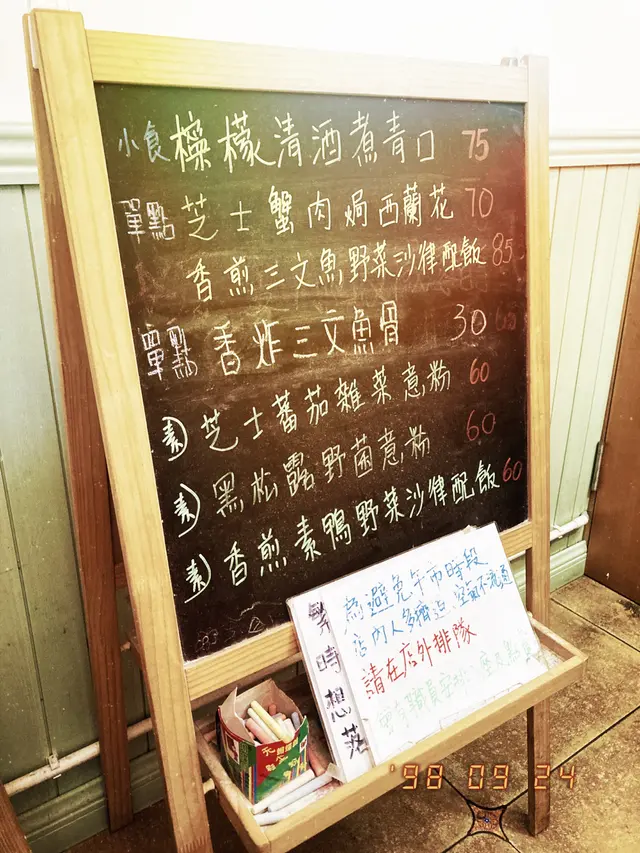 小食 檸檬清酒煮青口 75
單點 芝士蟹肉焗西蘭花 70
香煎三文魚野菜沙律配飯 85
單點 香炸三文魚骨 30
素 芝士蕃茄雜菜意粉 60
素 黑松露野菌意粉 60
素 香煎素鴨野菜沙律配飯 60
為避免午市時段
店內人多擠迫、空氣不流通
請在店外排隊
時想落
'98 09 24